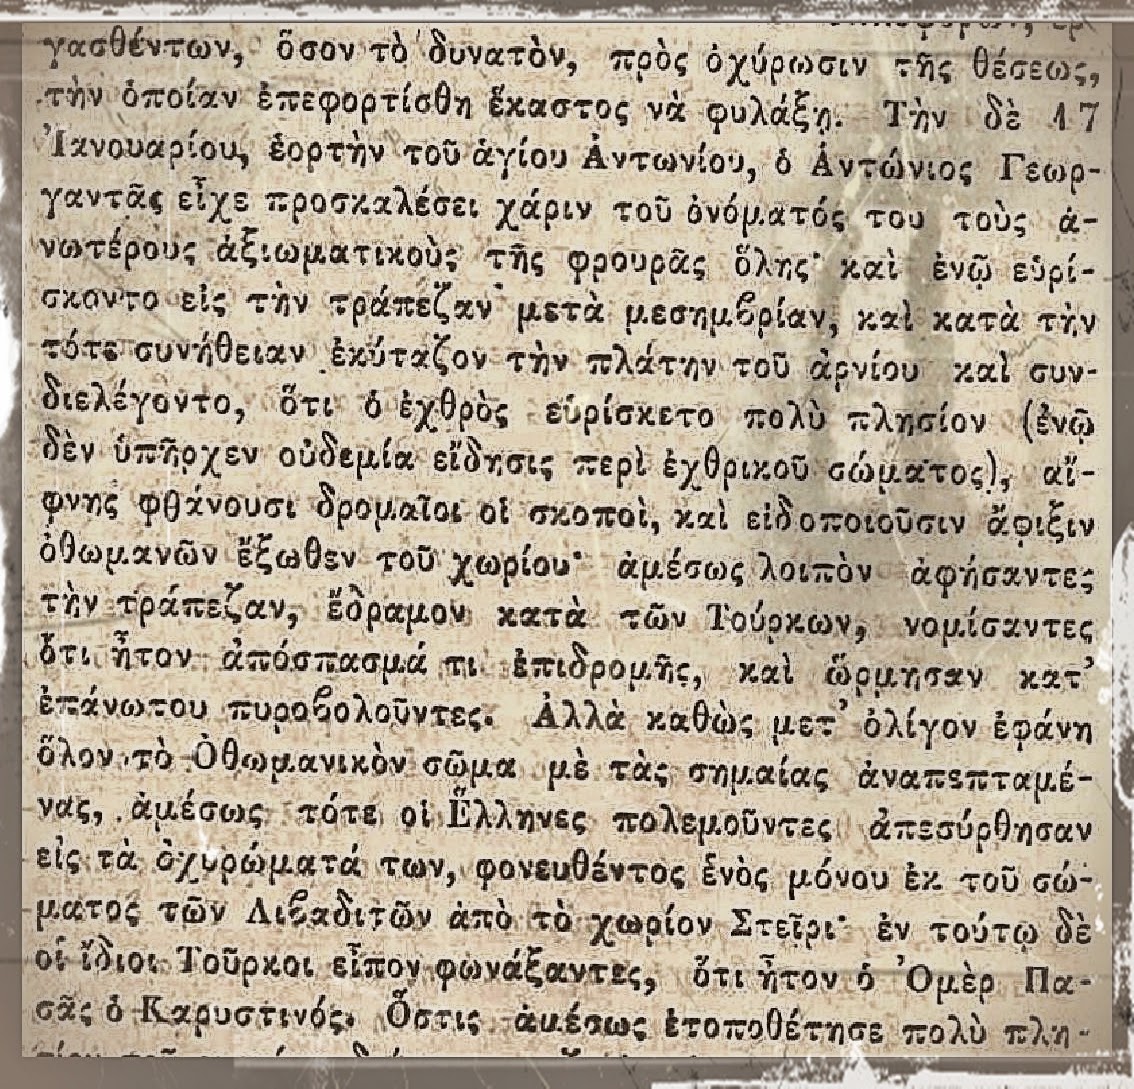 γασθέντων, ὅσον τὸ δυνατὸν, πρὸς ὀχύρωσιν τῆς θέσεως,
τὴν ὁποίαν ἐπεφορτίσθη ἕκαστος νὰ φυλάξῃ. Τὴν δὲ 17
Ἰανουαρίου, ἑορτὴν τοῦ ἁγίου Ἀντωνίου, ὁ Ἀντώνιος Γεωρ-
γαντᾶς εἶχε προσκαλέσει χάριν τοῦ ὀνόματός του τοὺς ἀ-
νωτέρους ἀξιωματικοὺς τῆς φρουρᾶς ὅλης· καὶ ἐνῷ εὑρί-
σκοντο εἰς τὴν τράπεζαν μετὰ μεσημβρίαν, καὶ κατὰ τὴν
τότε συνήθειαν ἐκύταζον τὴν πλάτην τοῦ ἀρνίου καὶ συν-
διελέγοντο, ὅτι ὁ ἐχθρὸς εὑρίσκετο πολὺ πλησίον (ἐνῷ
δὲν ὑπῆρχεν οὐδεμία εἴδησις περὶ ἐχθρικοῦ σώματος), αἴ-
φνης φθάνουσι δρομαῖοι οἱ σκοποὶ, καὶ εἰδοποιοῦσιν ἄφιξιν
ὀθωμανῶν ἔξωθεν τοῦ χωρίου· ἀμέσως λοιπὸν ἀφήσαντες
τὴν τράπεζαν, ἔδραμον κατὰ τῶν Τούρκων, νομίσαντες
ὅτι ἦτον ἀπόσπασμά τι ἐπιδρομῆς, καὶ ὥρμησαν κατ'
ἐπάνωτου πυροβολοῦντες. Ἀλλὰ καθὼς μετ' ὀλίγον ἐφάνη
ὅλον τὸ Ὀθωμανικὸν σῶμα μὲ τὰς σημαίας ἀναπεπταμέ-
νας, ἀμέσως τότε οἱ Ἕλληνες πολεμοῦντες ἀπεσύρθησαν
εἰς τὰ ὀχυρώματά των, φονευθέντος ἑνὸς μόνου ἐκ τοῦ σώ-
ματος τῶν Λιβαδιτῶν ἀπὸ τὸ χωρίον Στεῖρι· ἐν τούτῳ δὲ
οἱ ἴδιοι Τοῦρκοι εἶπον φωνάξαντες, ὅτι ἦτον ὁ Ὀμὲρ Πα-
σᾶς ὁ Καρυστινός. Ὅστις ἀμέσως ἐτοποθέτησε πολὺ πλη-